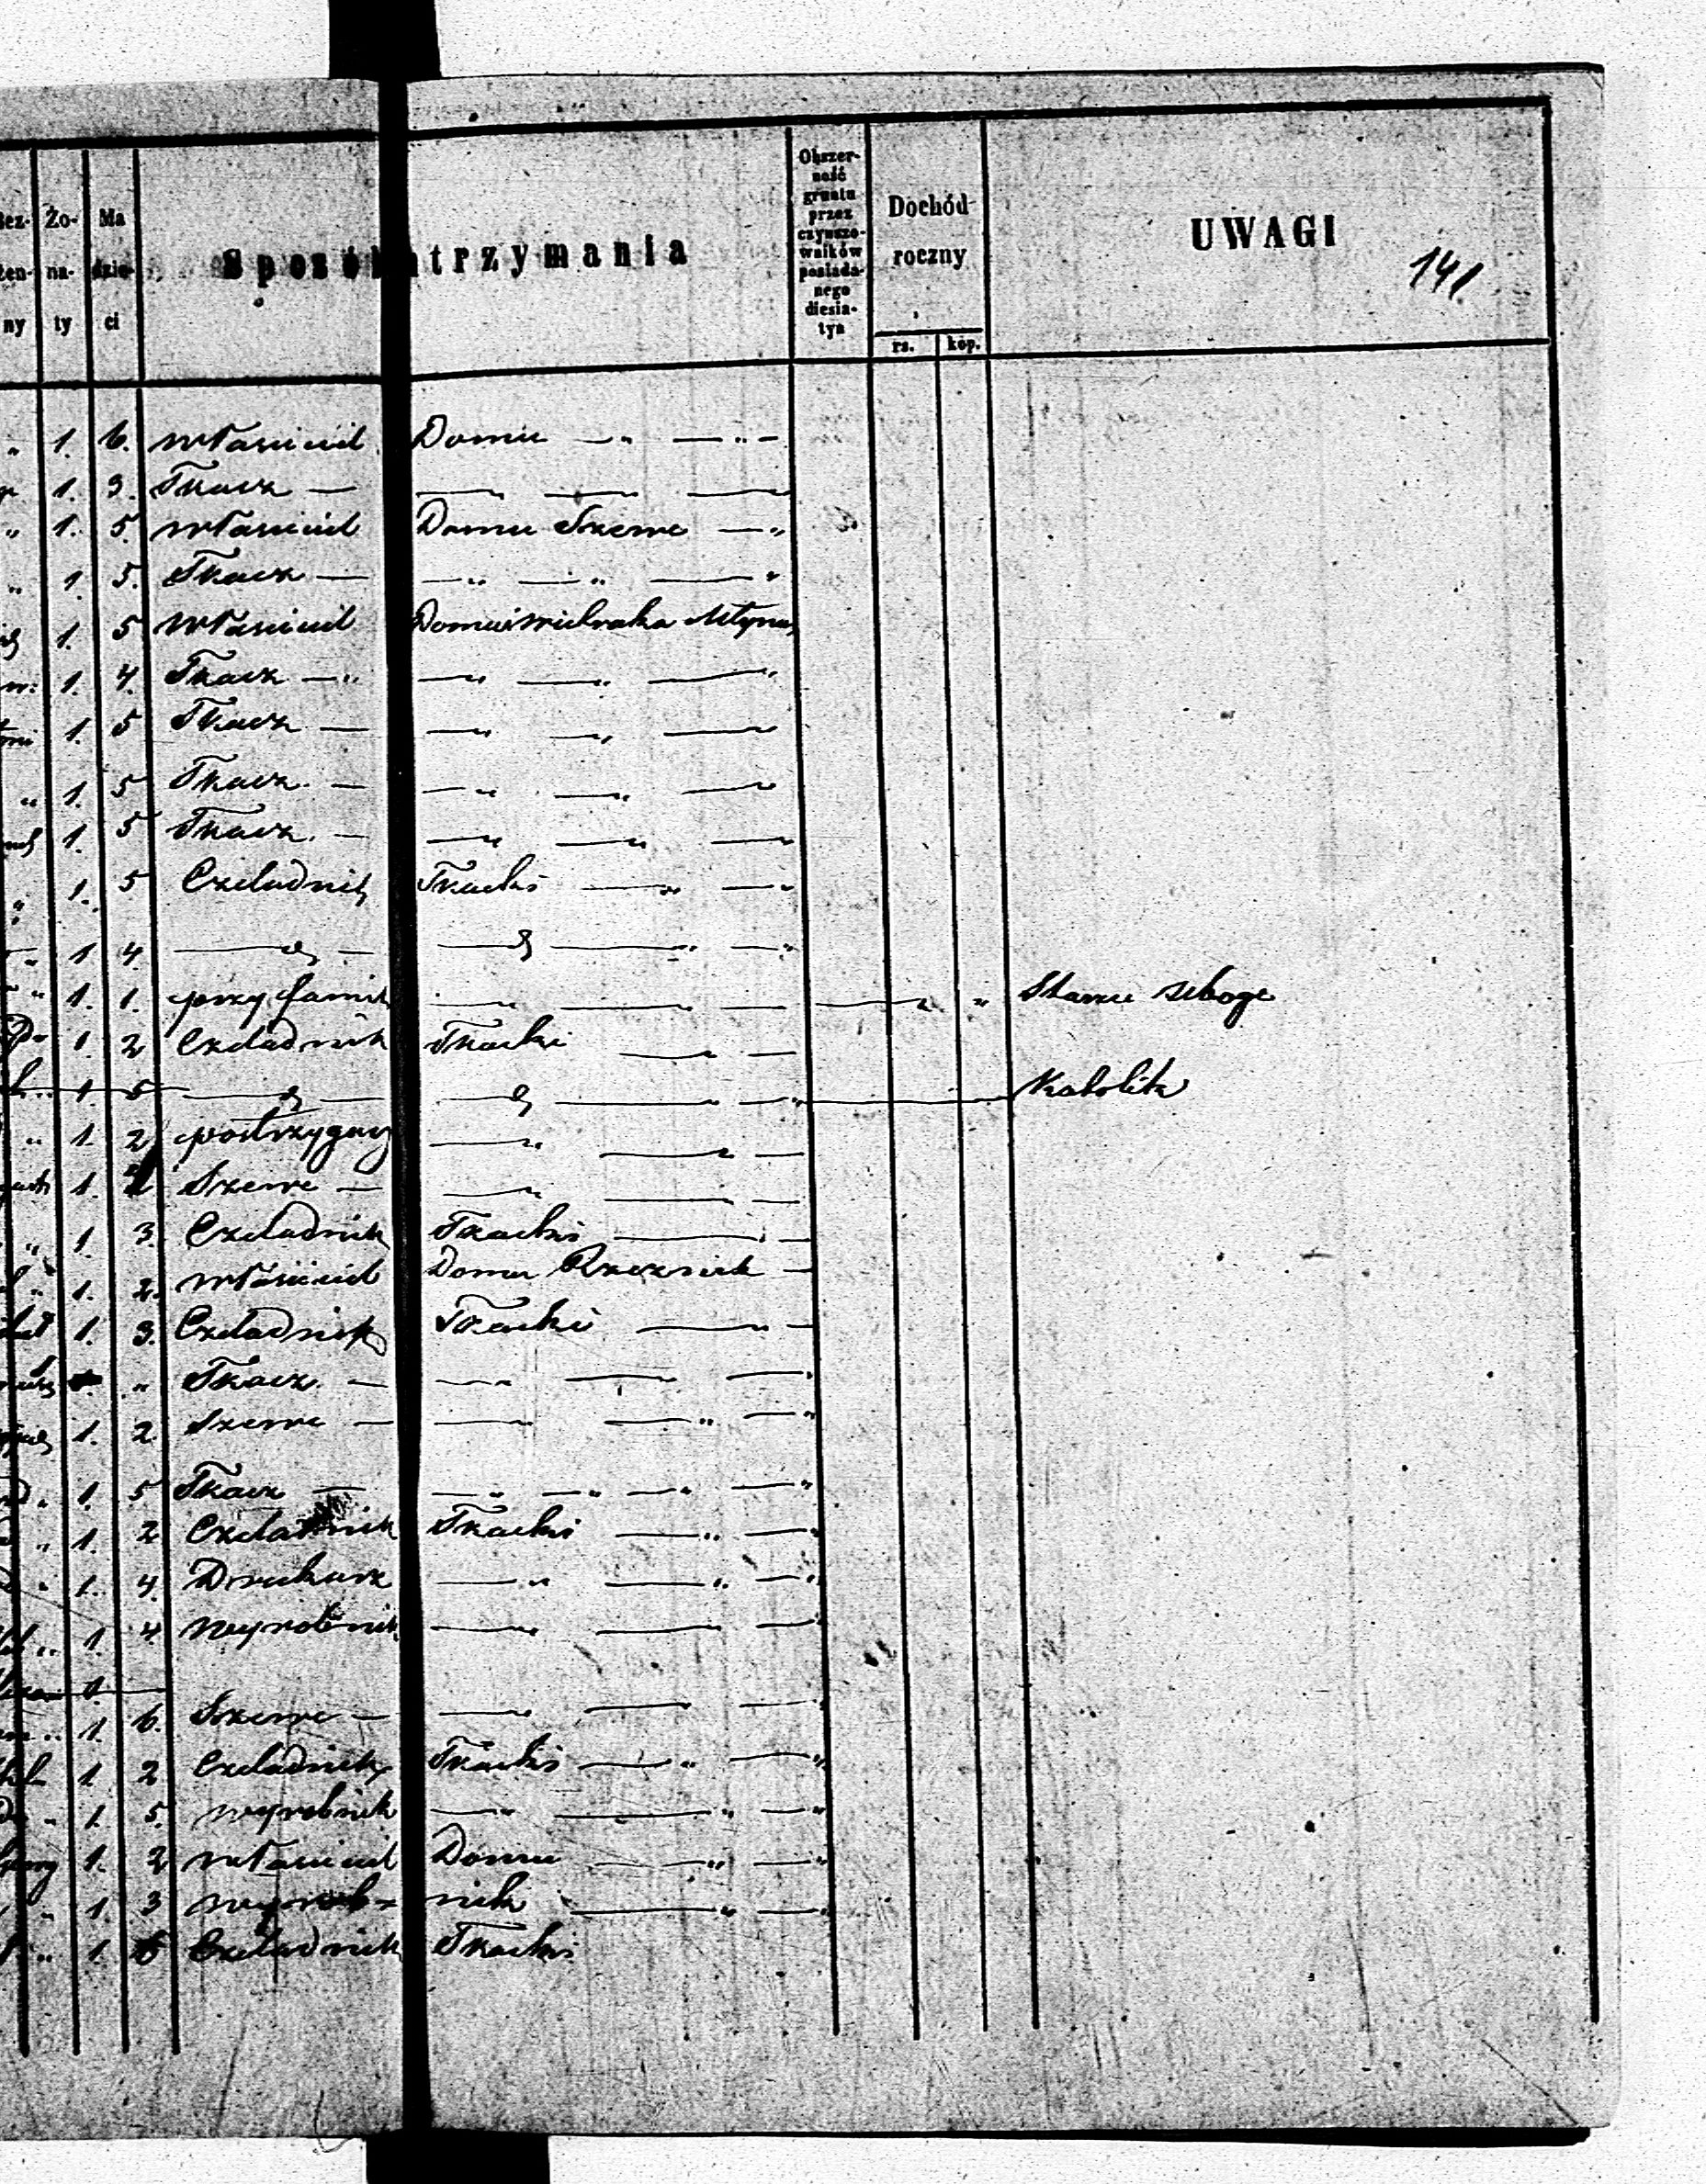 Bez- żen- ny Żo- na- ty Ma dzie- ci Sposób utrzymania Obszer- ność gruntu przez czynszo- wników posiada- nego diesia- tyn Dochód roczny rs. kop. UWAGI
141
" 1. 6. właściciel Domu — " — " —
1. 3. Tkacz — — — —
" 1. 5. właściciel Domu Szewc — "
" 1. 5. Tkacz — — " — " — "
1. 5 właściciel Domu i wiatraka Młyna
1. 4. Tkacz — " — " — " — "
1. 5 Tkacz — — " — " —
" 1. 5 Tkacz — — " — " —
1. 5 Tkacz — — " — " — "
" 1. 5 Czeladnik Tkacki — " — "
" 1 4. — — — " — "
" 1. 1. przy familii — — — — " " Starzec ubogi
1. 2 Czeladnik Tkacki — —
1. 5 — — — — " Katolik
" 1. 2 postrzygacz — " — —
1. 2 Szewc — — " — —
" 1. 3. Czeladnik Tkacki — —
" 1. 2. właściciel Domu Rzeznik —
1. 3. Czeladnik Tkacki — —
" Tkacz — — " — — "
1. 2. Szewc — — — " — "
" 1. 5 Tkacz — — " — " — " — "
" 1. 2 Czeladnik Tkacki — " — "
" 1. 4. Drukarz — " — " — "
" 1. 4. wyrobnik — " — — "
1.
" 1. 6. Szewc — — " — — "
1. 2 Czeladnik Tkacki — " — "
" 1. 5. wyrobnik — " — " — "
1. 2 właściciel Domu — " — "
" 1. 3 wyrob- nik — " — "
" 1. 5 Czeladnik Tkacki